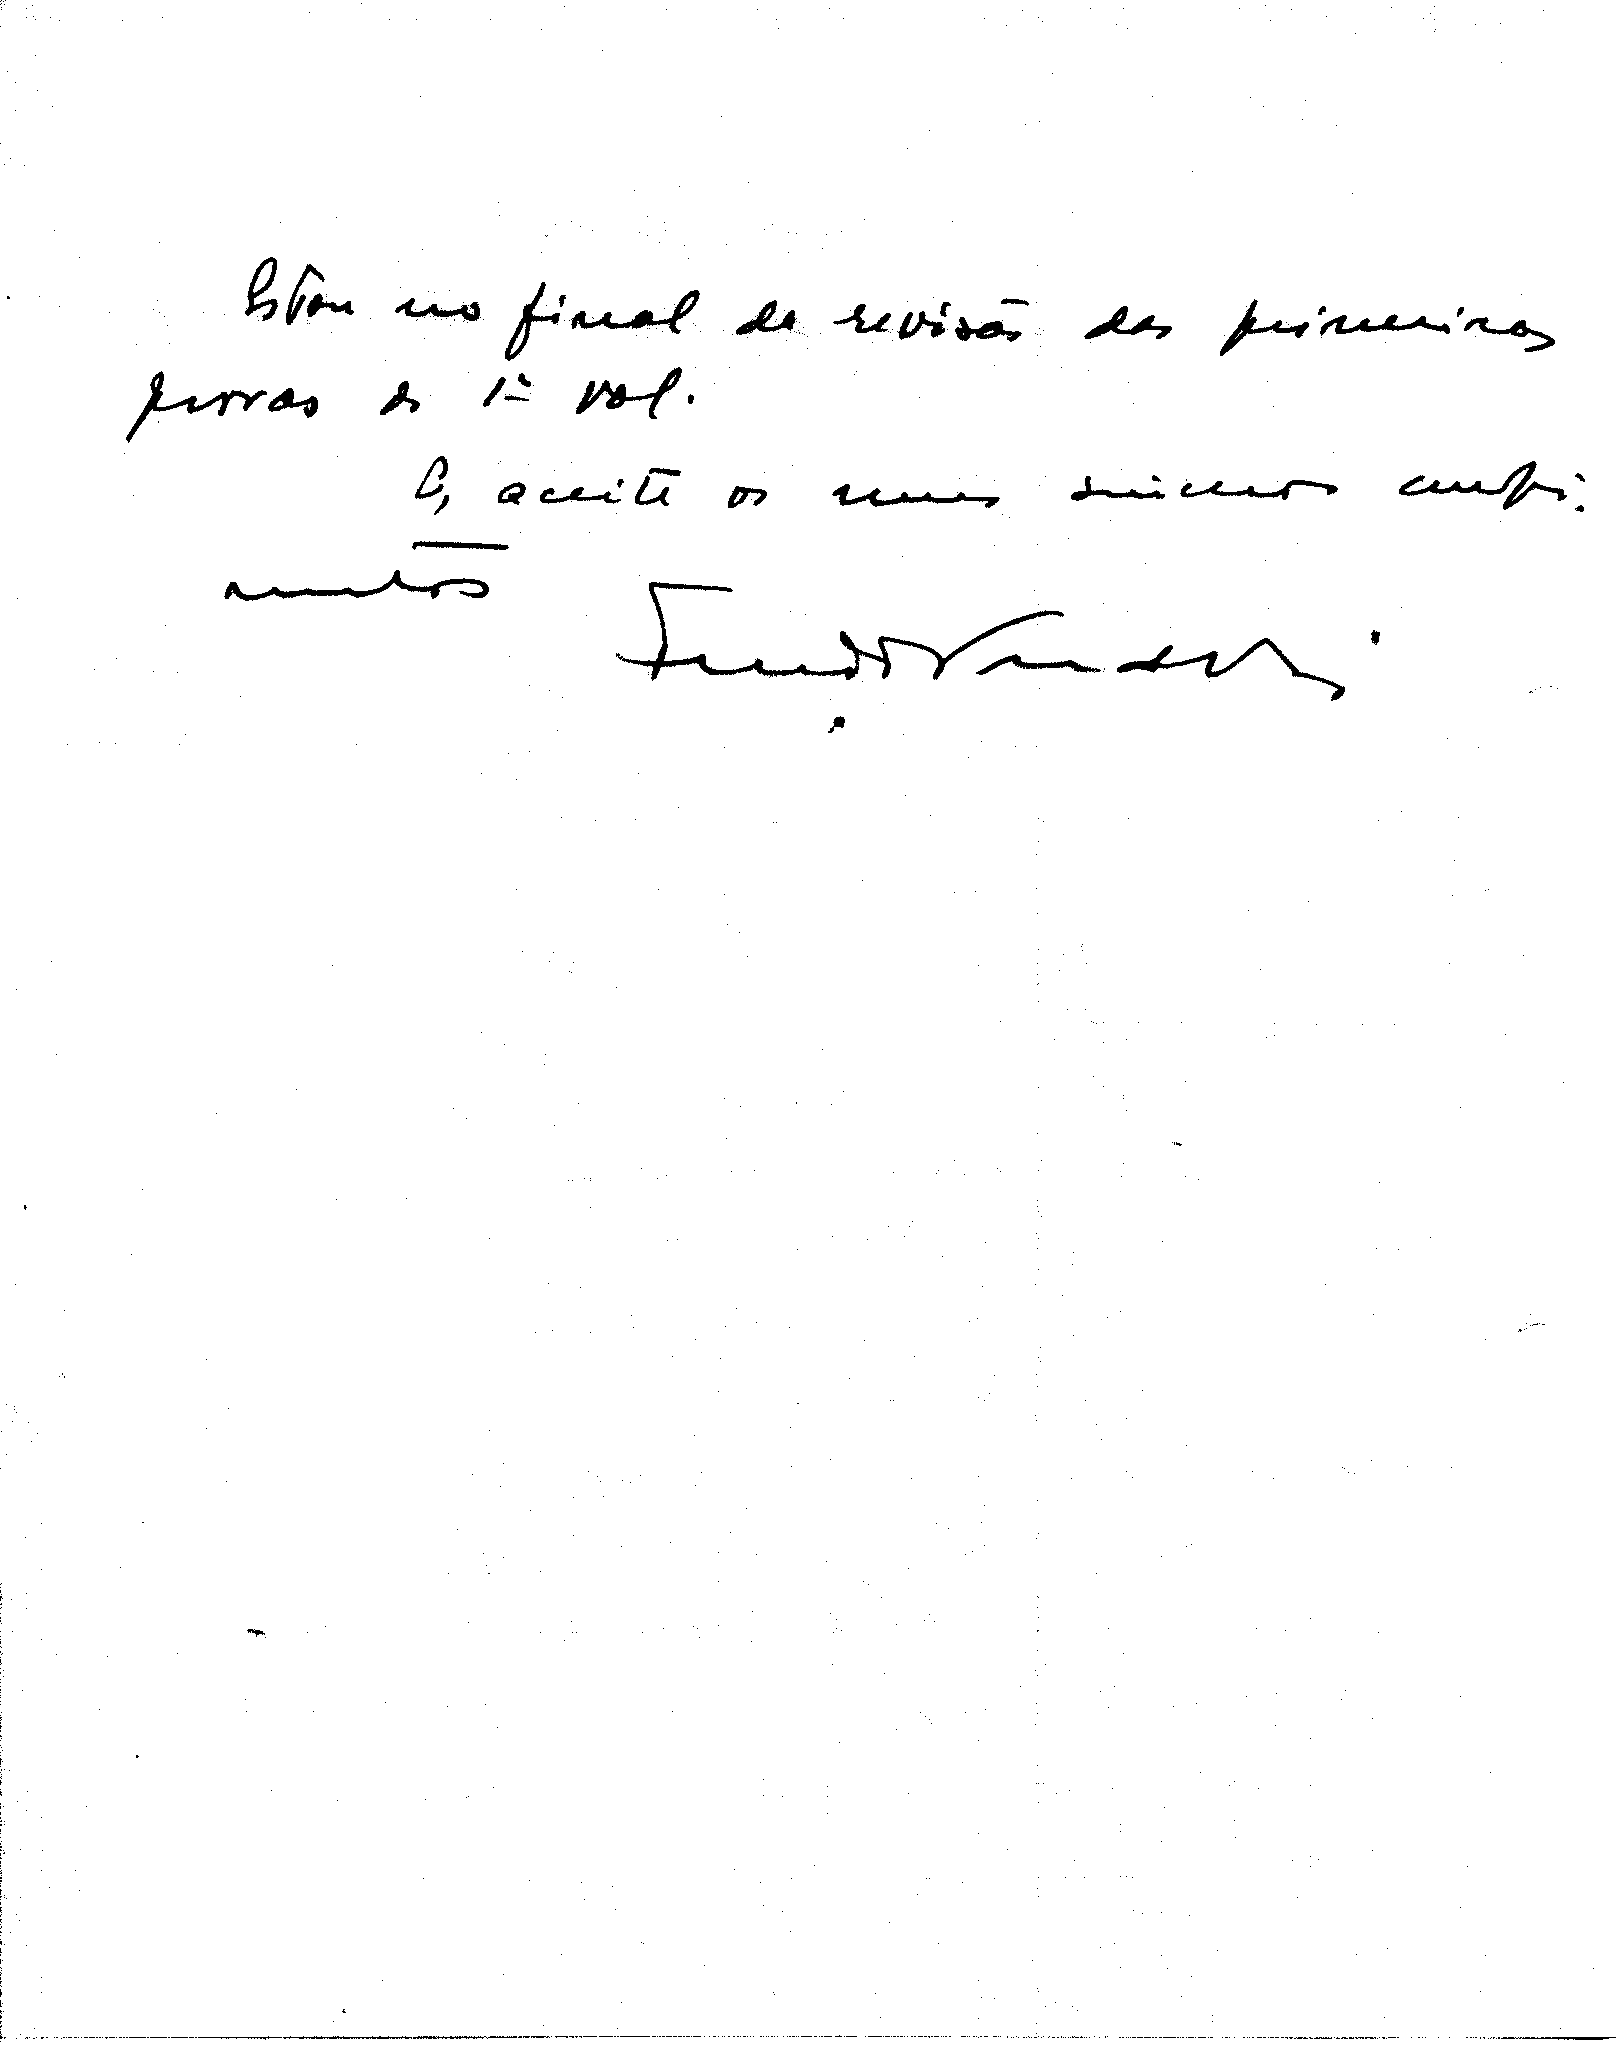 Estou no final da revisão das primeiras
provas do 1º vol.
E, aceite os meus sinceros cumpri-
mentos